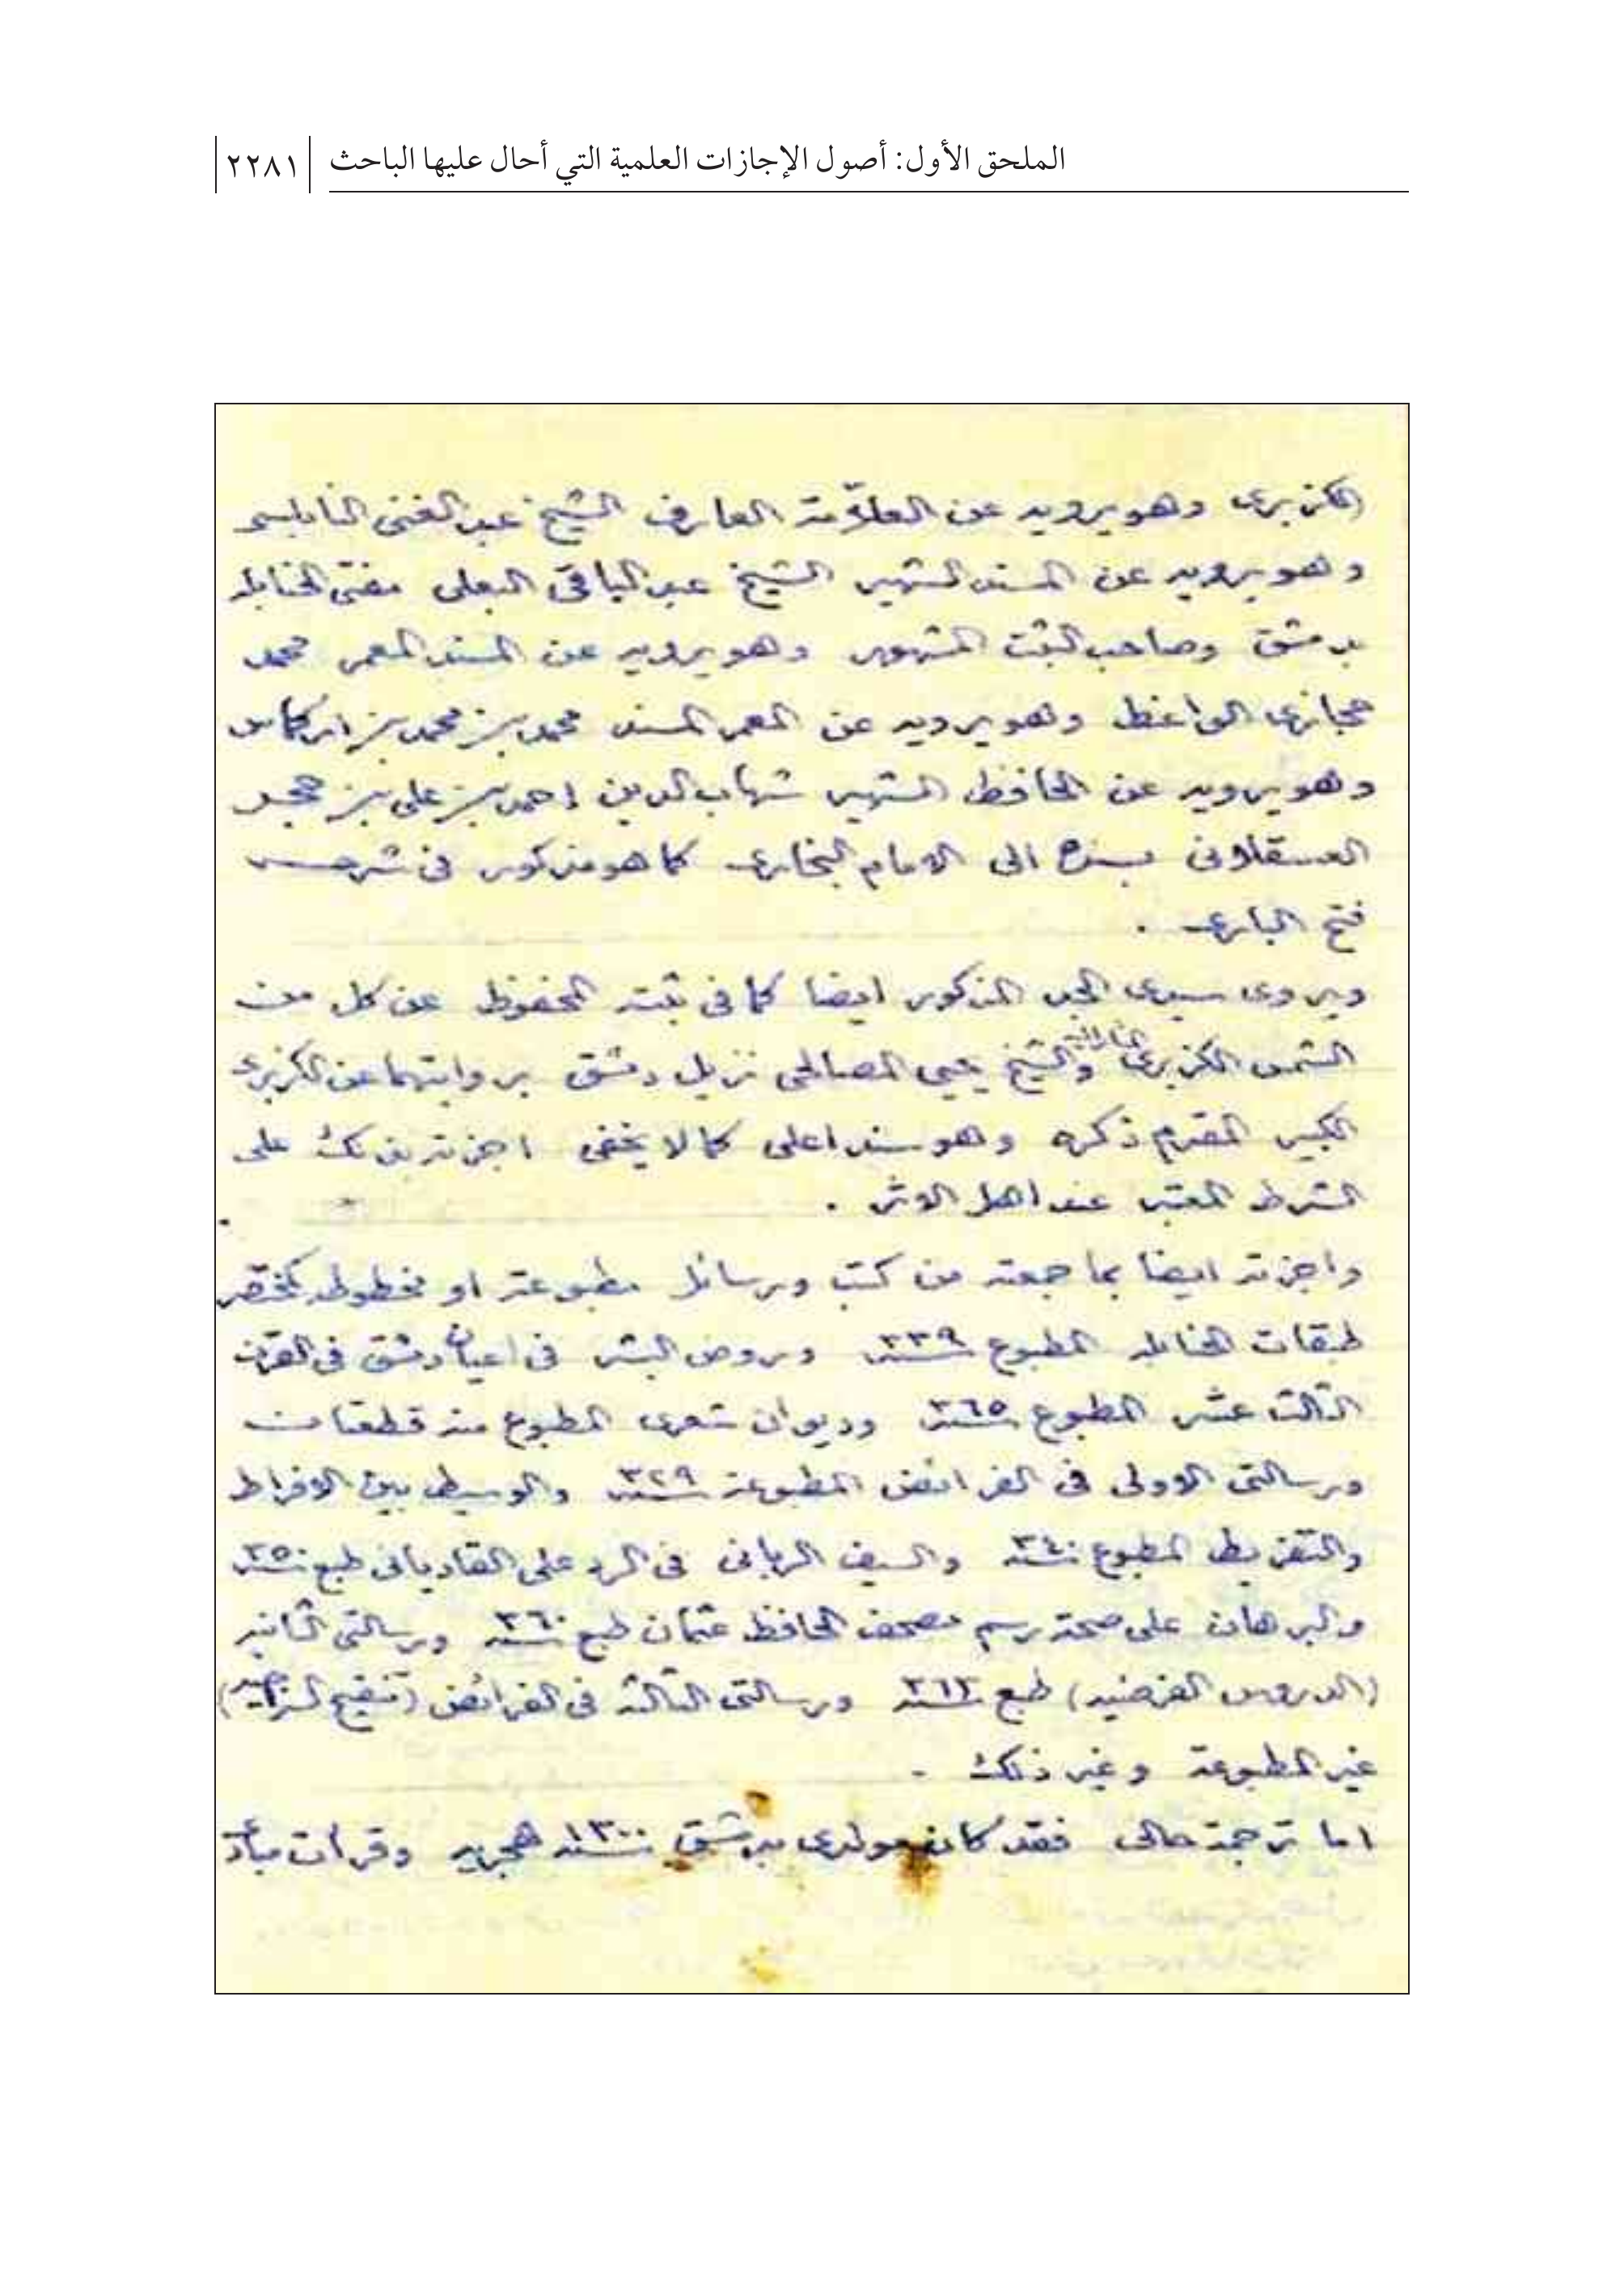 الملحق الأول: أصول الإجازات العلمية التي أحال عليها الباحث
٢٢٨١
الكزبرى وهو يرويه عن العلاّمة العارف الشيخ عبد الغنى النابلسى
وهو يرويه عن المسند الشهير الشيخ عبد الباقى البعلى مفتى الحنابله
بدمشق وصاحب الثبت المشهور وهو يرويه عن المسند المعمر محمد
حجازى الواعظ وهو يرويه عن المعمر المسند محمد بن محمد بن اركماس
وهو يرويه عن الحافظ الشهير شهاب الدين احمد بن على بن حجر
العسقلانى بسنده الى الامام البخارى كما هو مذكور فى شرحه
فتح البارى .
ويروى سيدى الجد المذكور ايضا كما فى ثبته المحفوظ عن كل من
الشمس الكزبرى والشيخ يحيى المصالحى نزيل دمشق بروايتهما عن الكزبرى
الكبير المقدم ذكره وهو سند اعلى كما لا يخفى اجزته بذلك على
الشرط المعتبر عند اهل الاثر .
واجزته ايضا بما جمعته من كتب ورسائل مطبوعة او مخطوطه كمختصر
طبقات الحنابله المطبوع سنة ٣٣٩ وروض البشر فى اعيان دمشق فى القرن
الثالث عشر المطبوع سنة ٣٦٥ وديوان شعرى المطبوع منه قطعتان
ورسالتى الاولى فى الفرائض المطبوعة سنة ٣٢٩ والوسيط بين الافراط
والتفريط المطبوع سنة ٣٤٠ والسيف الربانى فى الرد على القاديانى طبع سنة ٣٥٠
والبرهان على صحة رسم مصحف الحافظ عثمان طبع سنة ٣٦٠ ورسالتى الثانيه
(الدروس الفرضيه) طبع سنة ورسالتى الثالثه فى الفرائض (تنقيح السراجيه)
غير المطبوعة وغير ذلك .
اما ترجمة حالى فقد كان مولدى بدمشق سنة ١٣٠٠ هجريه وقرأت مبادئ